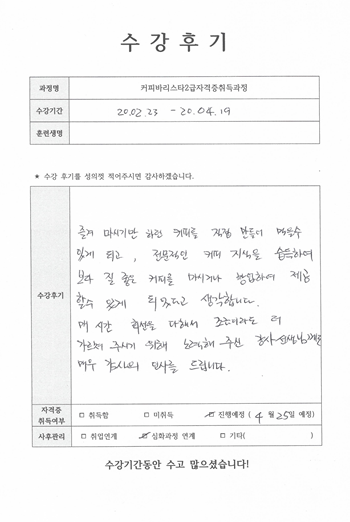 수강후기
과정명 커피바리스타2급자격증취득과정
수강기간 20.02.23 - 20.04.19
훈련생명
* 수강 후기를 성의껏 적어주시면 감사하겠습니다.
수강후기
즐겨 마시기만 하던 커피를 직접 만들어 먹을수
있게 되고, 전문적인 커피 지식을 습득하여
보다 질 좋은 커피를 마시거나 향유하여 제공
할수 있게 되었다고 생각합니다.
매 시간 최선을 다해서 조금이라도 더
가르쳐 주시기 위해 노력해 주신 강사선생님께
매우 감사의 인사를 드립니다.
자격증 취득여부 □ 취득함 □ 미취득 ☑ 진행예정 ( 4 월 25일 예정)
사후관리 □ 취업연계 ☑ 심화과정 연계 □ 기타( )
수강기간동안 수고 많으셨습니다!